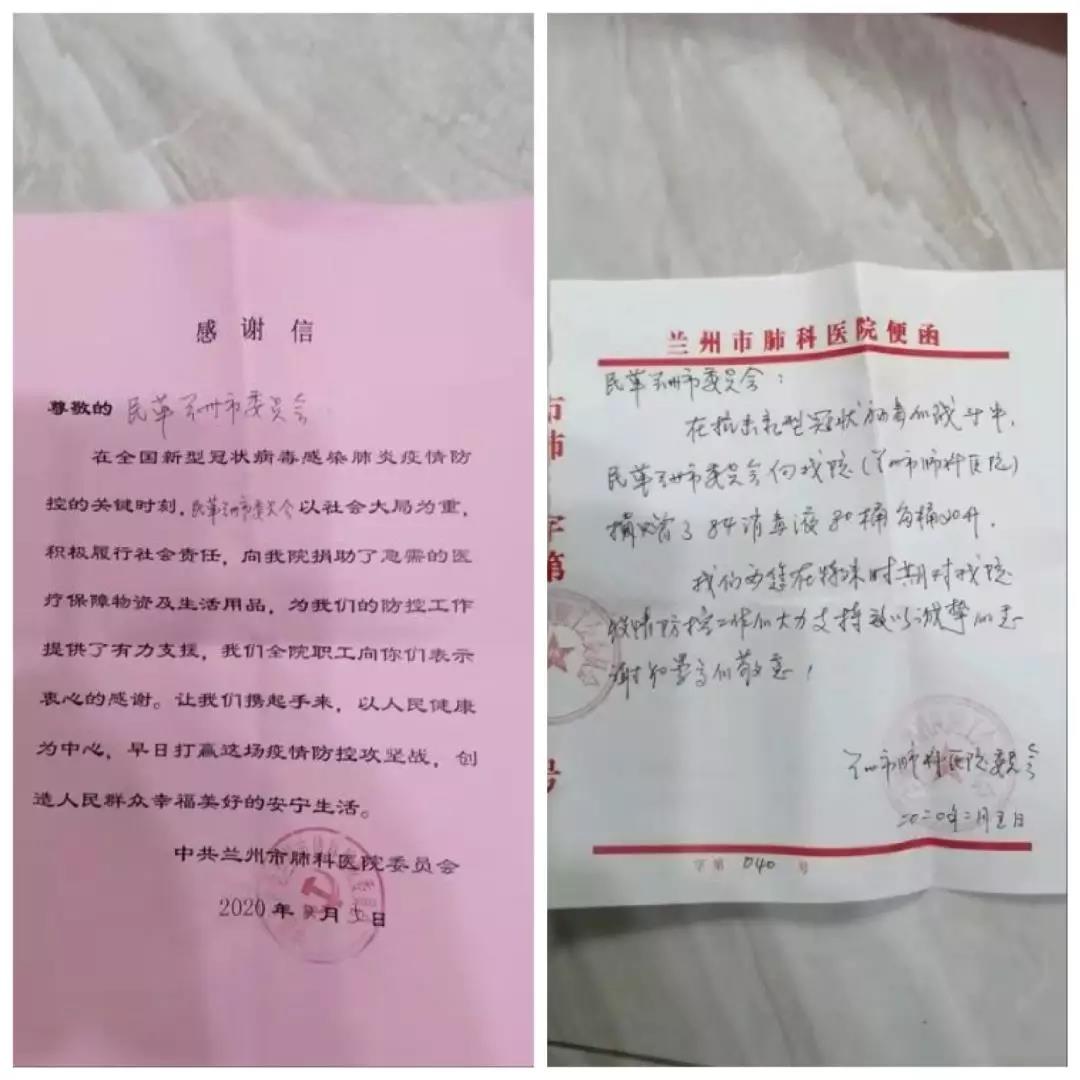 感谢信
尊敬的 民革兰州市委员会：
在全国新型冠状病毒感染肺炎疫情防
控的关键时刻，民革兰州市委员会以社会大局为重，
积极履行社会责任，向我院捐助了急需的医
疗保障物资及生活用品，为我们的防控工作
提供了有力支援，我们全院职工向你们表示
衷心的感谢。让我们携起手来，以人民健康
为中心，早日打赢这场疫情防控攻坚战，创
造人民群众幸福美好的安宁生活。
中共兰州市肺科医院委员会
2020年 月五日
兰州市肺科医院便函
民革兰州市委员会：
在抗击新型冠状病毒的战斗中，
民革兰州市委员会向我院（兰州市肺科医院）
捐赠了84消毒液80桶每桶20升．
我们 您在特殊时期对我院
疫情防控工作的大力支持致以诚挚的感
谢和最高的敬意！
兰州市肺科医院委员会
二〇二〇年二月五日
字第 040 号
市
肺
字
第
号